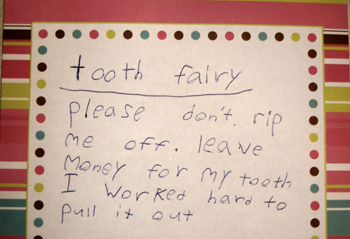 tooth fairy
please don't. rip
me off. leave
Money for my tooth
I worked hard to
pull it out